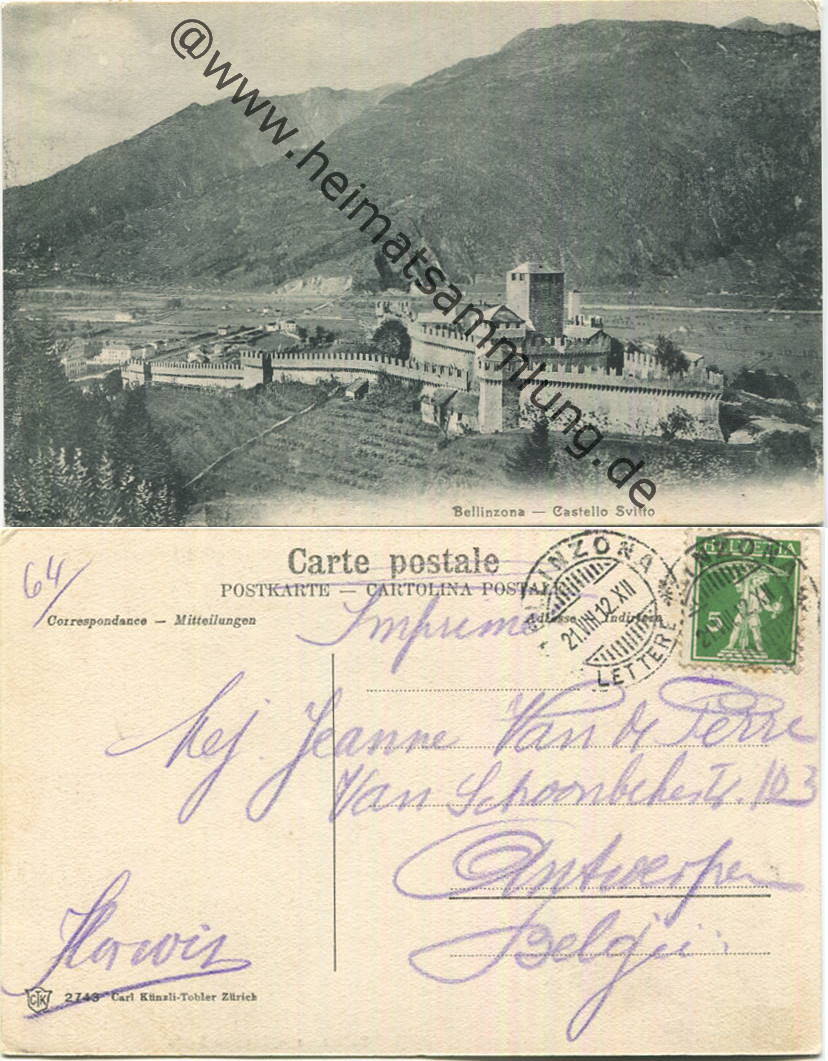 @www.heimatsammlung.de
Bellinzona — Castello Svitto
64/
Carte postale
POSTKARTE — CARTOLINA POSTALE
Correspondance — Mitteilungen
Adresse Indirizzo
Imprimé
BELLINZONA
21.VIII.12.XII
LETTERE
HELVETIA
5
Mej. Jeanne Van de Perre
Van Schoonbekestr. 103
Antwerpen
België
CTK
2743 Carl Künzli-Tobler Zürich